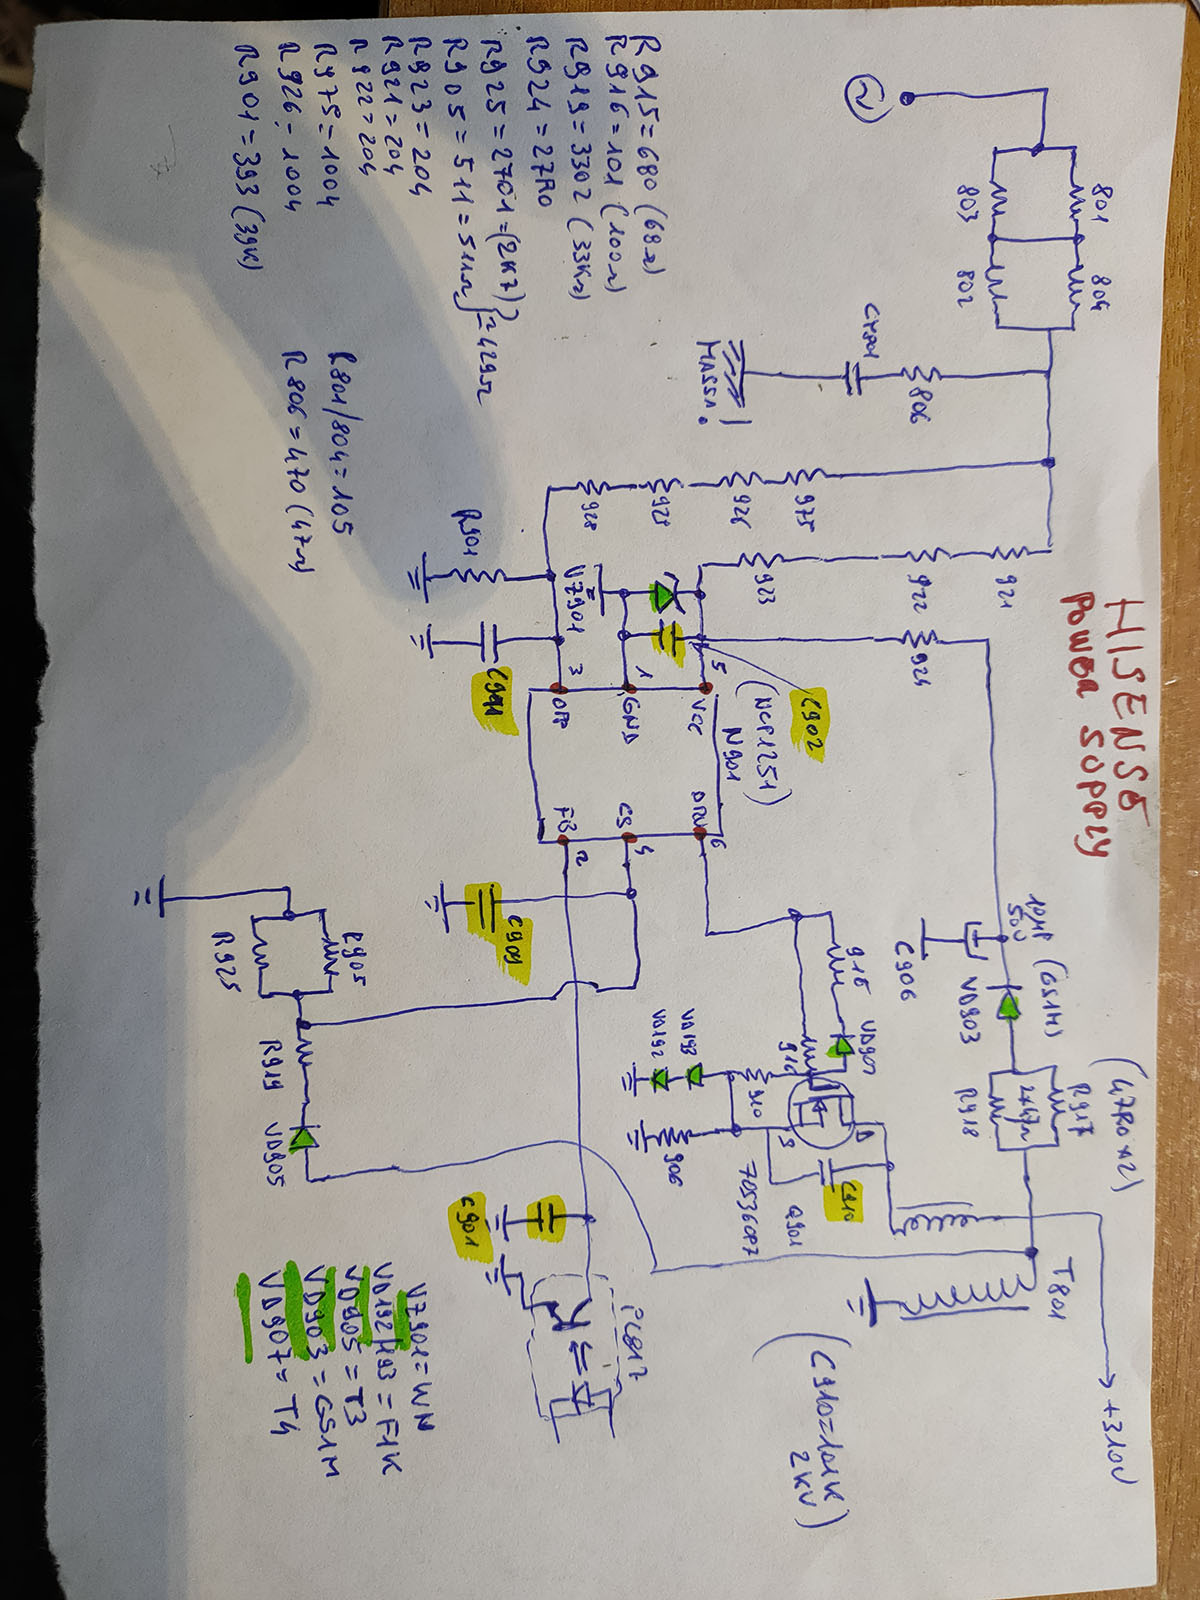 HISENSE
POWER SUPPLY
801
804
803
802
806
MASSA!
921
922
923
924
975
926
928
R901
VZ901
C902
N901
(NCP1251)
VCC
5
GND
1
OPP
3
DRV
6
CS
4
FB
2
C909
R905
R925
R919
VD905
10µF
50V
C906
(GS1M)
VD903
(47R0x2)
R917
2x47Ω
R918
T801
+310V
916
VD907
910
VD193
VD192
906
D
S
C910
Q901
C901
PC817
(C910=101K
2KV)
R915=680 (68Ω)
R916=101 (100Ω)
R919=3302 (33KΩ)
R924=27R0
R925=2701=(2K7)
R905=511=511Ω
=429Ω
R923=204
R921=204
R922=204
R975=1004
R926=1004
R901=393 (39K)
R801/804=105
R806=470 (47Ω)
VZ901=WN
VD192/193=F1K
VD905=T3
VD903=GS1M
VD907=T4